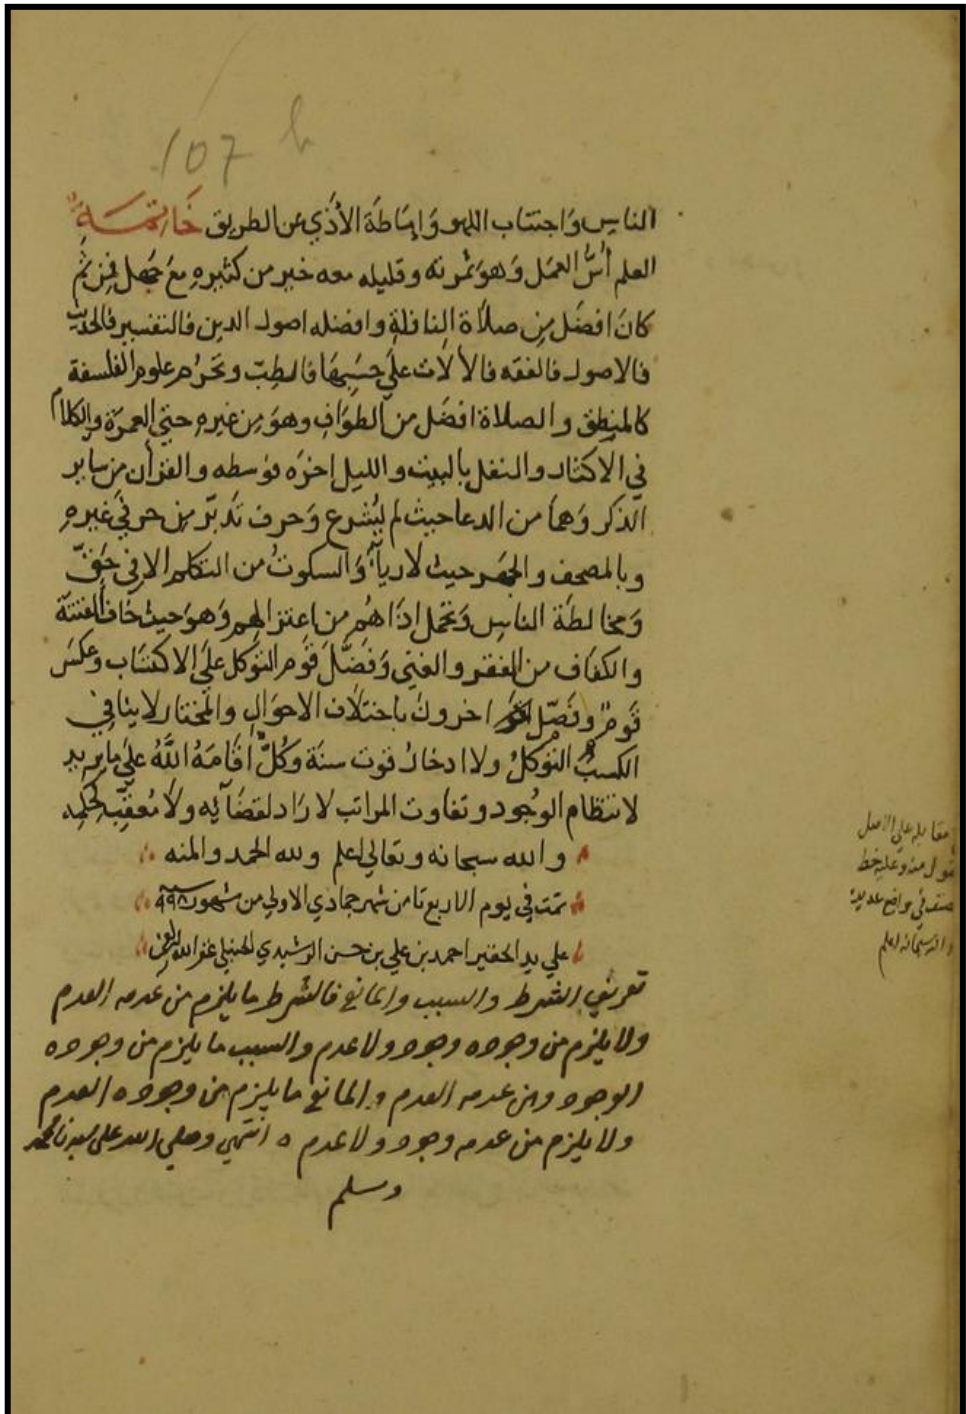 107 b
الناس وَاجتناب اللهو وَامَاطَة الأذَي عن الطريق خَاتِمَة
العلم أسُّ العمَل وَهوَ ثمرته وقليله معه خير من كثيره مَعَ جَهل فمِن ثم
كانَ افضَل مِن صلاَة النافلة وافضله اصول الدين فالتفسير فالحديث
فالاصول فالفقه فالألات علَي حَسَبِهَا فالطبّ وتحرُم علوم الفلسفة
كالمنطق والصلاة افضَل من الطوَافِ وهوَ مِن غيره حتي العمرَة والكلام
في الاكثار والنفل بالبيت والليل اخرَه فوسطه والقرأن من ساير
الذكر وَهمَا من الدعا حيث لم يُشرع وَحرف تَدَبّر مِن حرفَي غيره
وبالمصحف والجهر حيث لا ريآءَ وَالسكوتُ من التكلم الا في حَقّ
وَمخالطَة الناس وَتحمل اذَاهُم من اعتزالهم وَهوَ حيث خاف الفتنة
والكفَاف من الفقر والغني وَفَضَّلَ قَوم التوَكل علَي الاكتسَاب وعكسَ
قَومٌ وفَصّل اخرونَ باختلاَف الاحوَالِ والمختار لا ينافي
الكسبُ التوَكلَ ولا ادخارُ قوت سنَة وَكُلٌّ أقَامَهُ اللَّهُ علَي مَا يريد
لانتظام الوجُود وتفاوت المراتب لا رَاد لقضَآيه وَلاَ مُعقِّبَ لحكمِه
والله سبحانه وتعالي اعلم ولله الحمد والمنه
تمت في يوم الاربع ثامن شهر جمادي الاولي من شهور سنة ٩٩٨
علي يد الحقير احمد بن علي بن حسن الرشيدي الحنبلي غفر الله
تعريف الشرط والسبب والمانع فالشرط ما يلزم من عدمه العدم
ولا يلزم من وجوده وجود ولا عدم والسبب ما يلزم من وجوده
الوجود ومن عدمه العدم والمانع ما يلزم من وجوده العدم
ولا يلزم من عدمه وجود ولا عدم ه انتهي وصلي الله علي سيدنا محمد
وسلم
مقابله علي الاصل
منه وعليه خط
في مواضع عديدة
والله سبحانه اعلم